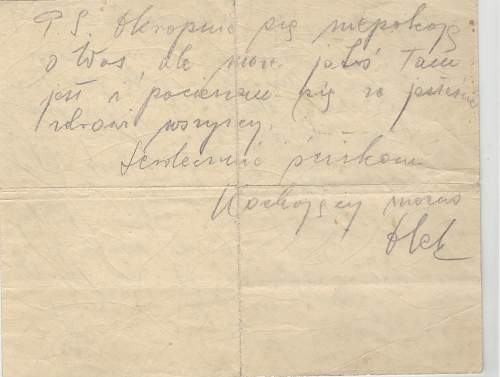 P.S. Okropnie się niepokoję
o Was, ale może jakoś tam
jest i pocieszam się że jesteście
zdrowi wszyscy.
Serdecznie ściskam
Kochający mocno
Olek